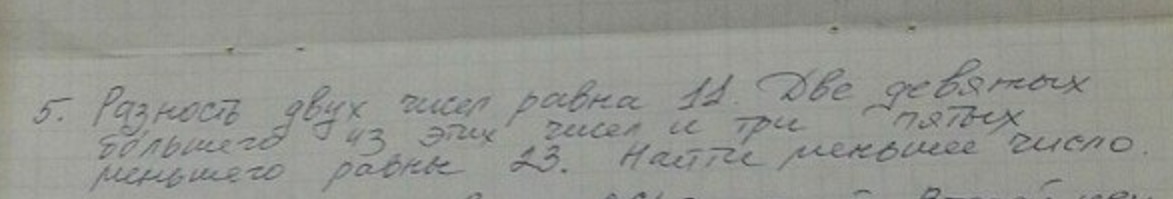 5. Разность двух чисел равна 11. Две девятых
большего из этих чисел и три пятых
меньшего равны 23. Найти меньшее число.